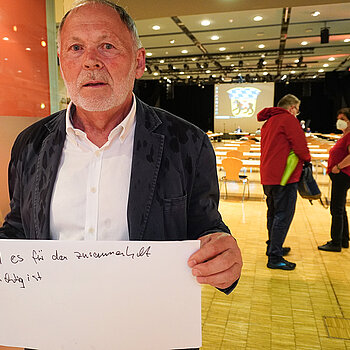 es für den zusammenhalt
ist